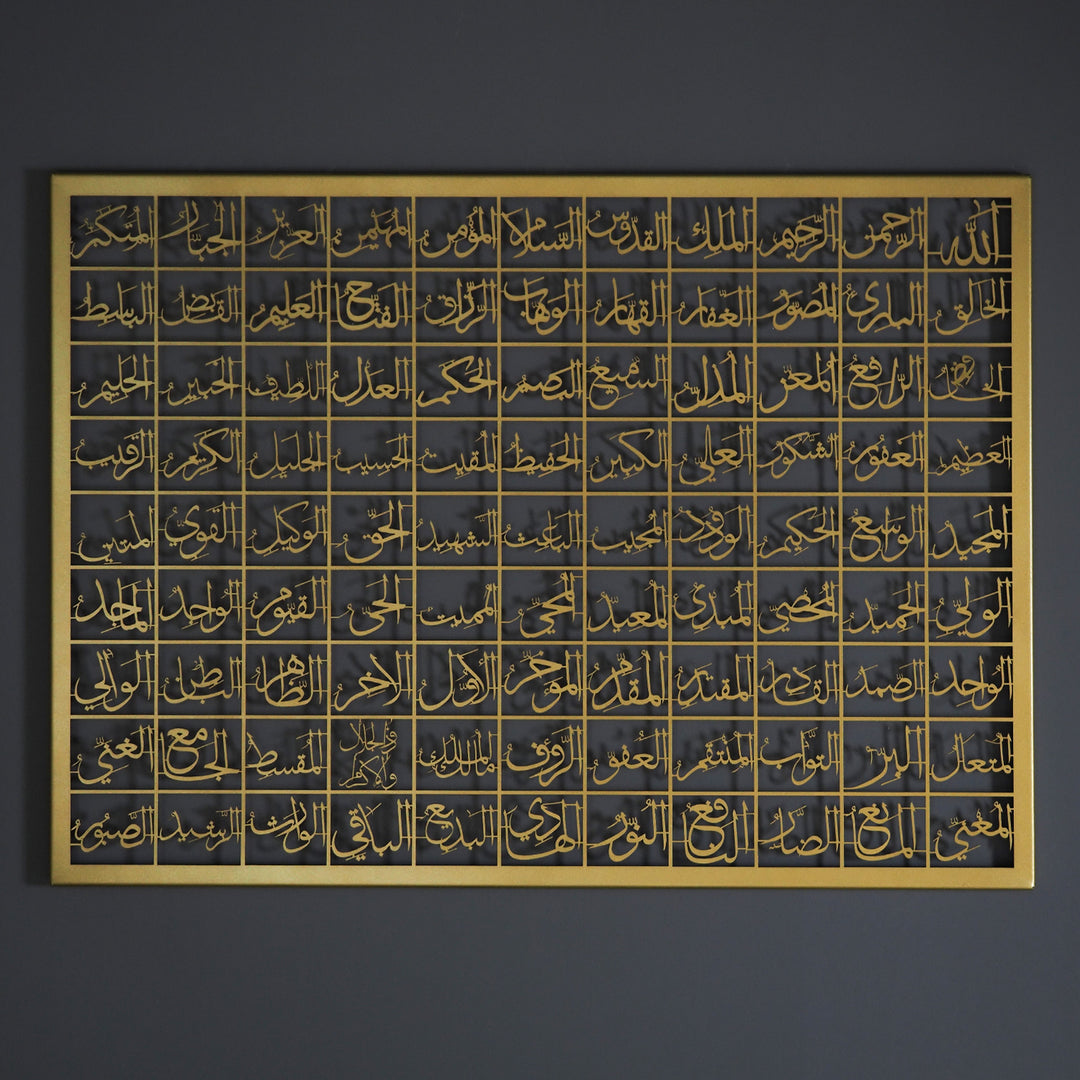 الله الرحمن الرحيم الملك القدوس السلام المؤمن المهيمن العزيز الجبار المتكبر
الخالق البارئ المصور الغفار القهار الوهاب الرزاق الفتاح العليم القابض الباسط
الخافض الرافع المعز المذل السميع البصير الحكم العدل اللطيف الخبير الحليم
العظيم الغفور الشكور العلي الكبير الحفيظ المقيت الحسيب الجليل الكريم الرقيب
المجيب الواسع الحكيم الودود المجيد الباعث الشهيد الحق الوكيل القوي المتين
الولي الحميد المحصي المبدئ المعيد المحيي المميت الحي القيوم الواجد الماجد
الواحد الصمد القادر المقتدر المقدم المؤخر الأول الآخر الظاهر الباطن الوالي
المتعال البر التواب المنتقم العفو الرؤوف مالك الملك ذو الجلال والإكرام المقسط الجامع الغني
المغني المانع الضار النافع النور الهادي البديع الباقي الوارث الرشيد الصبور